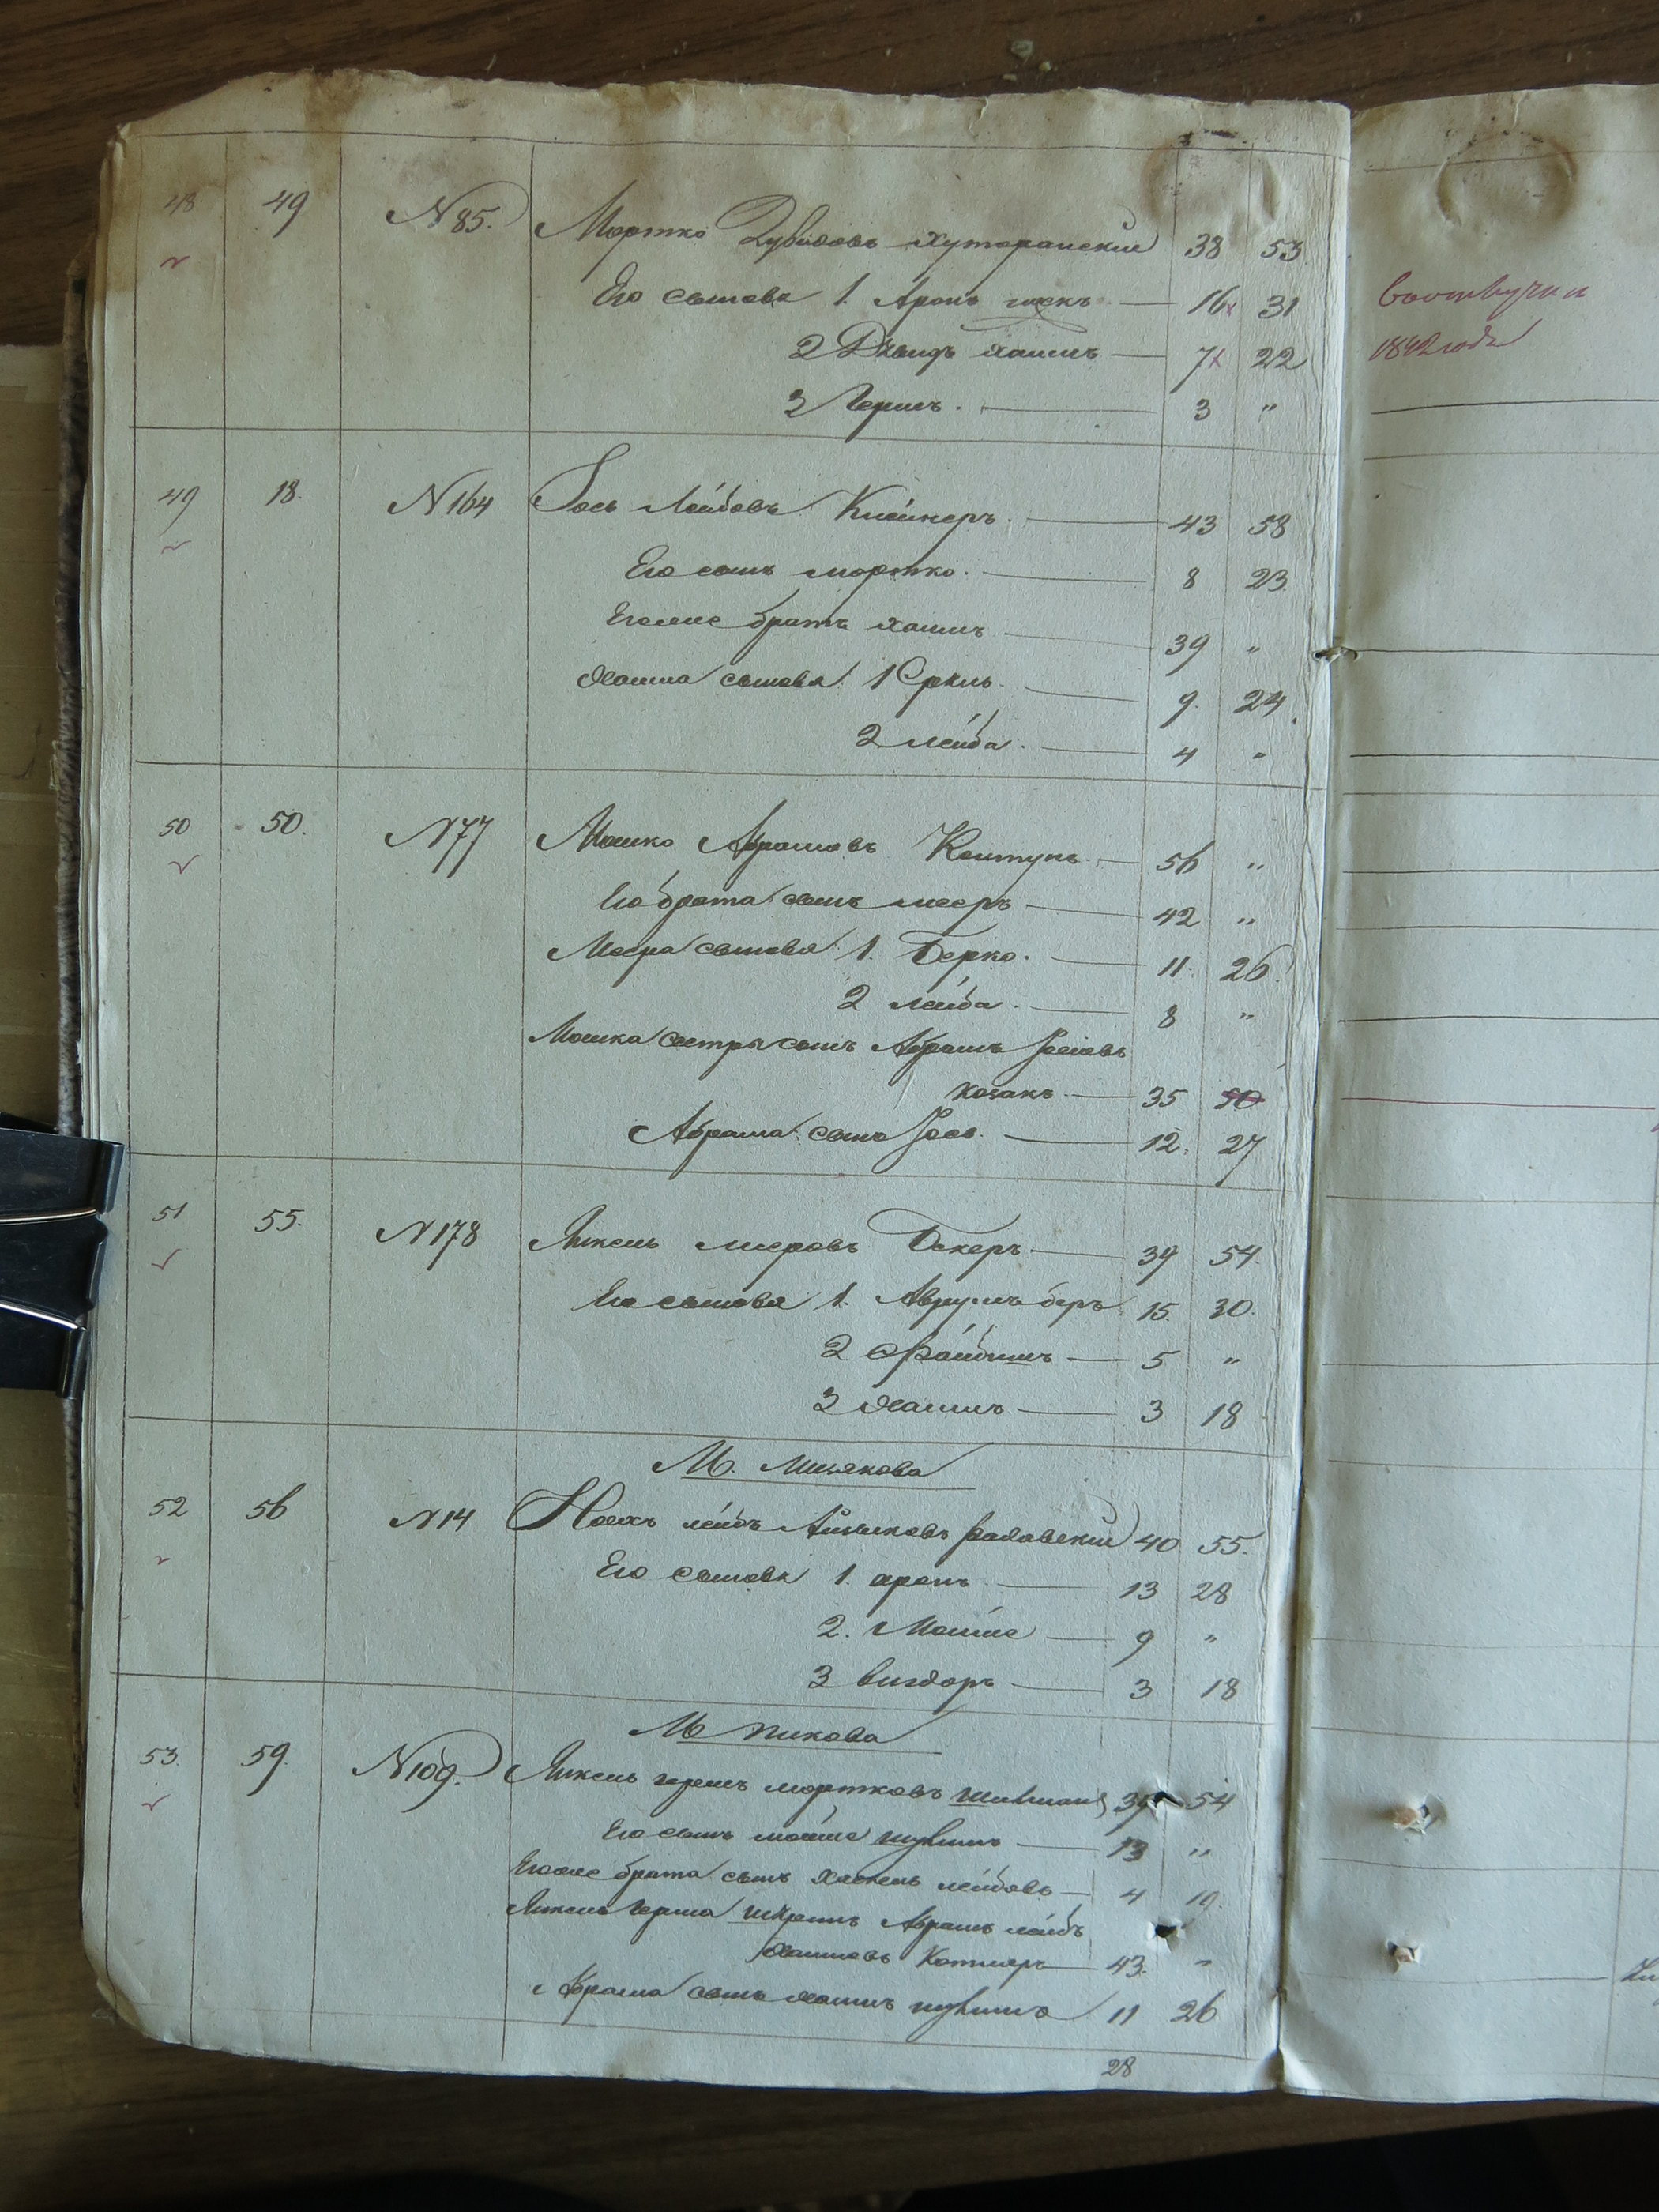 48 49 N 85. Мортко Дувидовъ Хуторанскій 38 53
Его сыновья 1. Аронъ 16 31
2 Давидъ Хаимъ 7 22
3 Гершъ. 3 "
1842 года
49 18. N 164 Іось Лейбовъ Клейнеръ 43 58
Его сынъ Мортко. 8 23
Егоже братъ Хаимъ 39 "
Хаима сыновья 1 Сруль 9. 24
2 Лейба. 4 "
50 50. N 77 Мошко Абрамовъ Колтунъ 56 "
Его брата сынъ Мееръ 42 "
Меера сыновья 1. Берко. 11. 26
2 Лейба. 8 "
Мошка сестры сынъ Абрамъ Іосіовъ
Козакъ 35 50
Абрама сынъ Іось. 12. 27
51 55. N 178 Янкель Меровъ Бекеръ 39 54.
Его сыновья 1. Аврумъ Беръ 15. 30.
2 Файбишъ 5 "
3 Хаимъ 3 18
М. Мизякова
52 56 N 14 Лейбъ Айзиковъ 40 55.
Его сыновья 1. Аронъ 13 28
2. Мойше 9 "
3 Вигдоръ 3 18
М. Пикова
53. 59. N 109. Янкель Гершъ Мортковъ 39 54
Его сынъ Мойше 13 "
Егоже брата сынъ Хаскель Лейбовъ 4 19.
Янкель Герша Абрамъ Лейбъ
Хаимовъ 43. "
Абрама сынъ Хаимъ 11 26
28